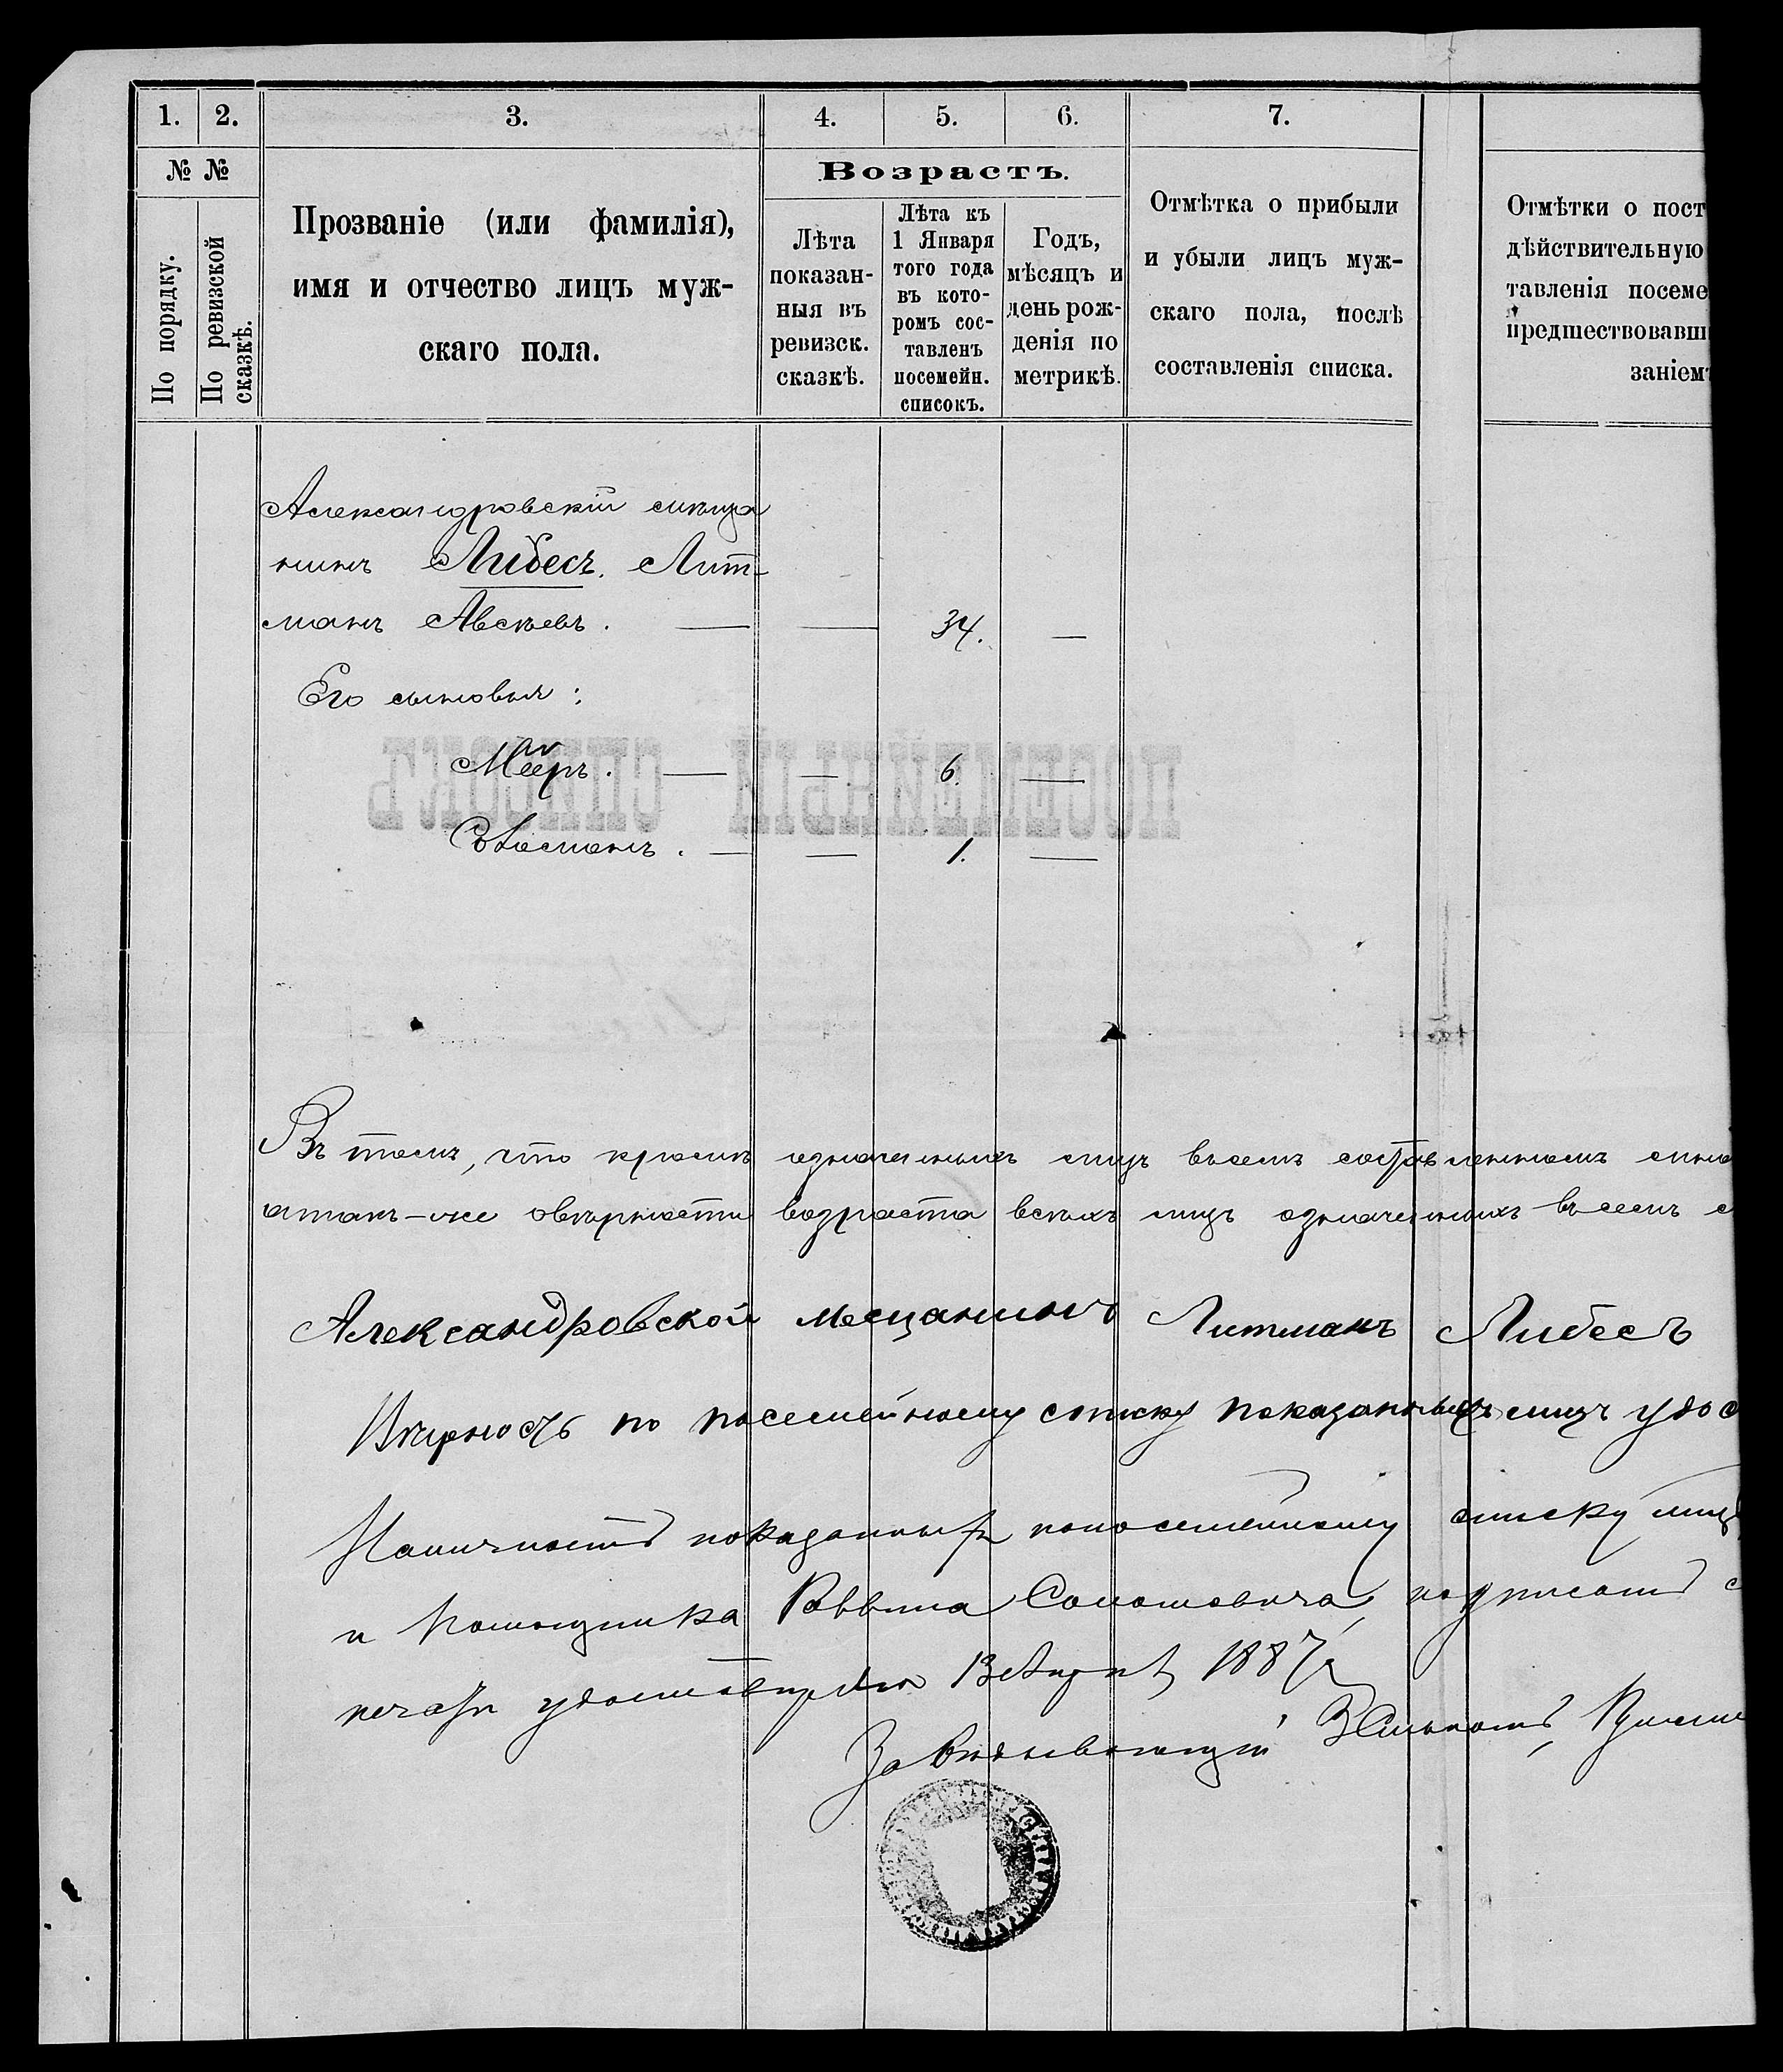 1. 2. 3. 4. 5. 6. 7.
№ №
По порядку.
По ревизской сказкѣ.
Прозваніе (или фамилія),
имя и отчество лицъ муж-
скаго пола.
Возрастъ.
Лѣта
показан-
ныя въ
ревизск.
сказкѣ.
Лѣта къ
1 Января
того года
въ кото-
ромъ сос-
тавленъ
посемейн.
списокъ.
Годъ,
мѣсяцъ и
день рож-
денія по
метрикѣ.
Отмѣтка о прибыли
и убыли лицъ муж-
скаго пола, послѣ
составленія списка.
Отмѣтки о пост
дѣйствительную
тавленія посеме
предшествовавш
заніем
Александровскій мѣща
нинъ Либесъ. Лит-
манъ Авсѣевъ. — — 34. —
Его сыновья:
Мееръ. — — 6. —
— — 1. —
ПОСЕМЕЙНЫЙ СПИСОКЪ
Въ томъ, что кромѣ означенныхъ лицъ въсемъ составленномъ
атакъ-же овѣрности возраста всѣхъ лицъ означенныхъ въ семъ с
Александровской мещанинъ Литманъ Либесъ
Вѣрность по посемейному списку показанныхъ лицъ удос
Наличность показанныхъ попосемейному списку лицъ
и Помощника Раввина подписомъ с
печати удостовѣряю 13 Апрѣля 1887 г
Завѣдывающій